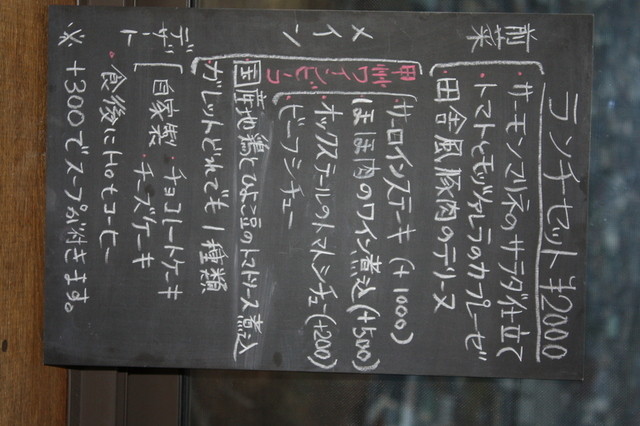 ランチセット ¥2000
前菜
・サーモンマリネのサラダ仕立て
・トマトとモッツァレラのカプレーゼ
・田舎風豚肉のテリーヌ
メイン
甲州ワインビーフ
・サロインステーキ (+1000)
ほほ肉のワイン煮込 (+500)
・オックステールのトマトシチュー (+200)
・ビーフシチュー
国産地鶏とひよこ豆のトマトソース煮込
ガレットどれでも1種類
デザート
自家製 ・チョコレートケーキ
・チーズケーキ
・食後にHotコーヒー
※ +300でスープが付きます。